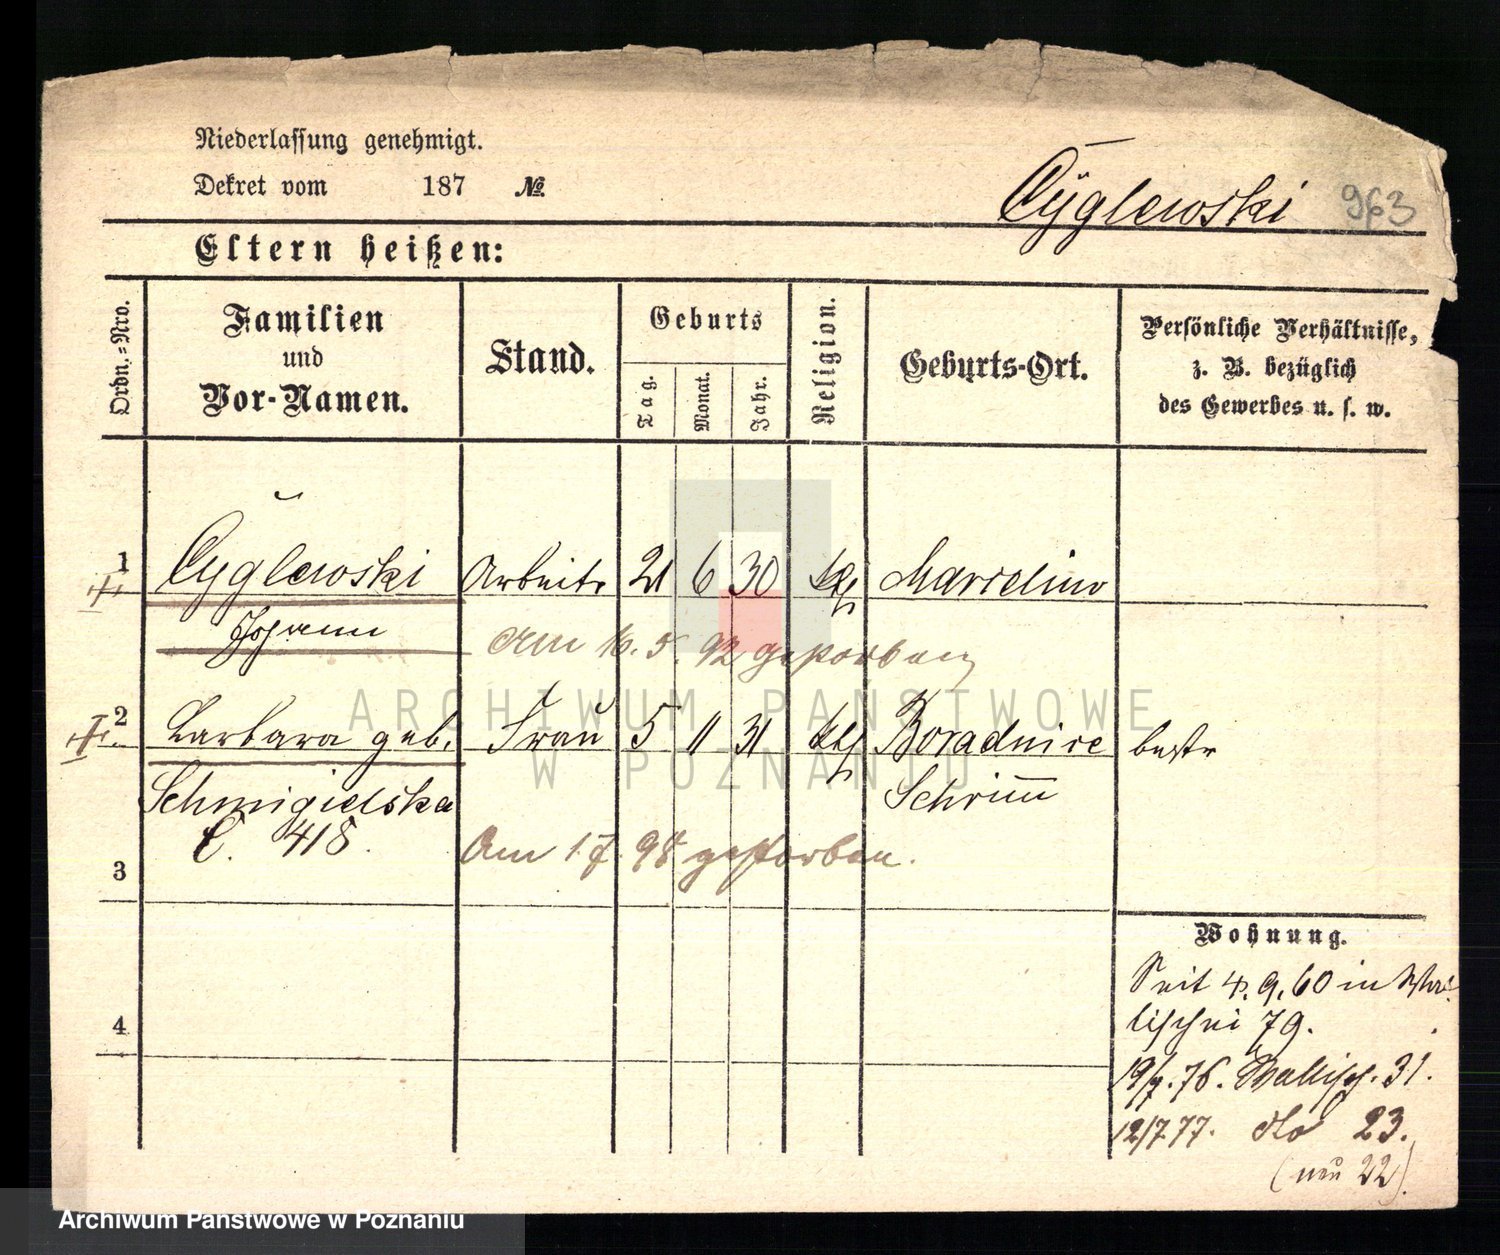 Niederlassung genehmigt.
Dekret vom 187 №
Cÿglewski 963
Eltern heißen:
Ordn.-Nro.
Familien
und
Vor-Namen.
Stand.
Geburts
Tag.
Monat.
Jahr.
Religion.
Geburts-Ort.
Persönliche Verhältnisse,
z. B. bezüglich
des Gewerbes u. s. w.
1 Cyglewski Arbeitr 21 6 30 kth Marcelino
Johann
Am 16. 5. 92 gestorben
2 Barbara geb. Frau 5 11 31 kth Boradnice bestr
Schmigielska Schrim̄
C. 418.
3 Am 1.7. 98 gestorben.
4
Wohnung.
Seit 4. 9. 60 in Wal-
lischei 79.
19/7. 76. Wallisch. 31.
12/7 77. dto 23.
(neu 22).
ARCHIWUM PAŃSTWOWE
W POZNANIU
Archiwum Państwowe w Poznaniu